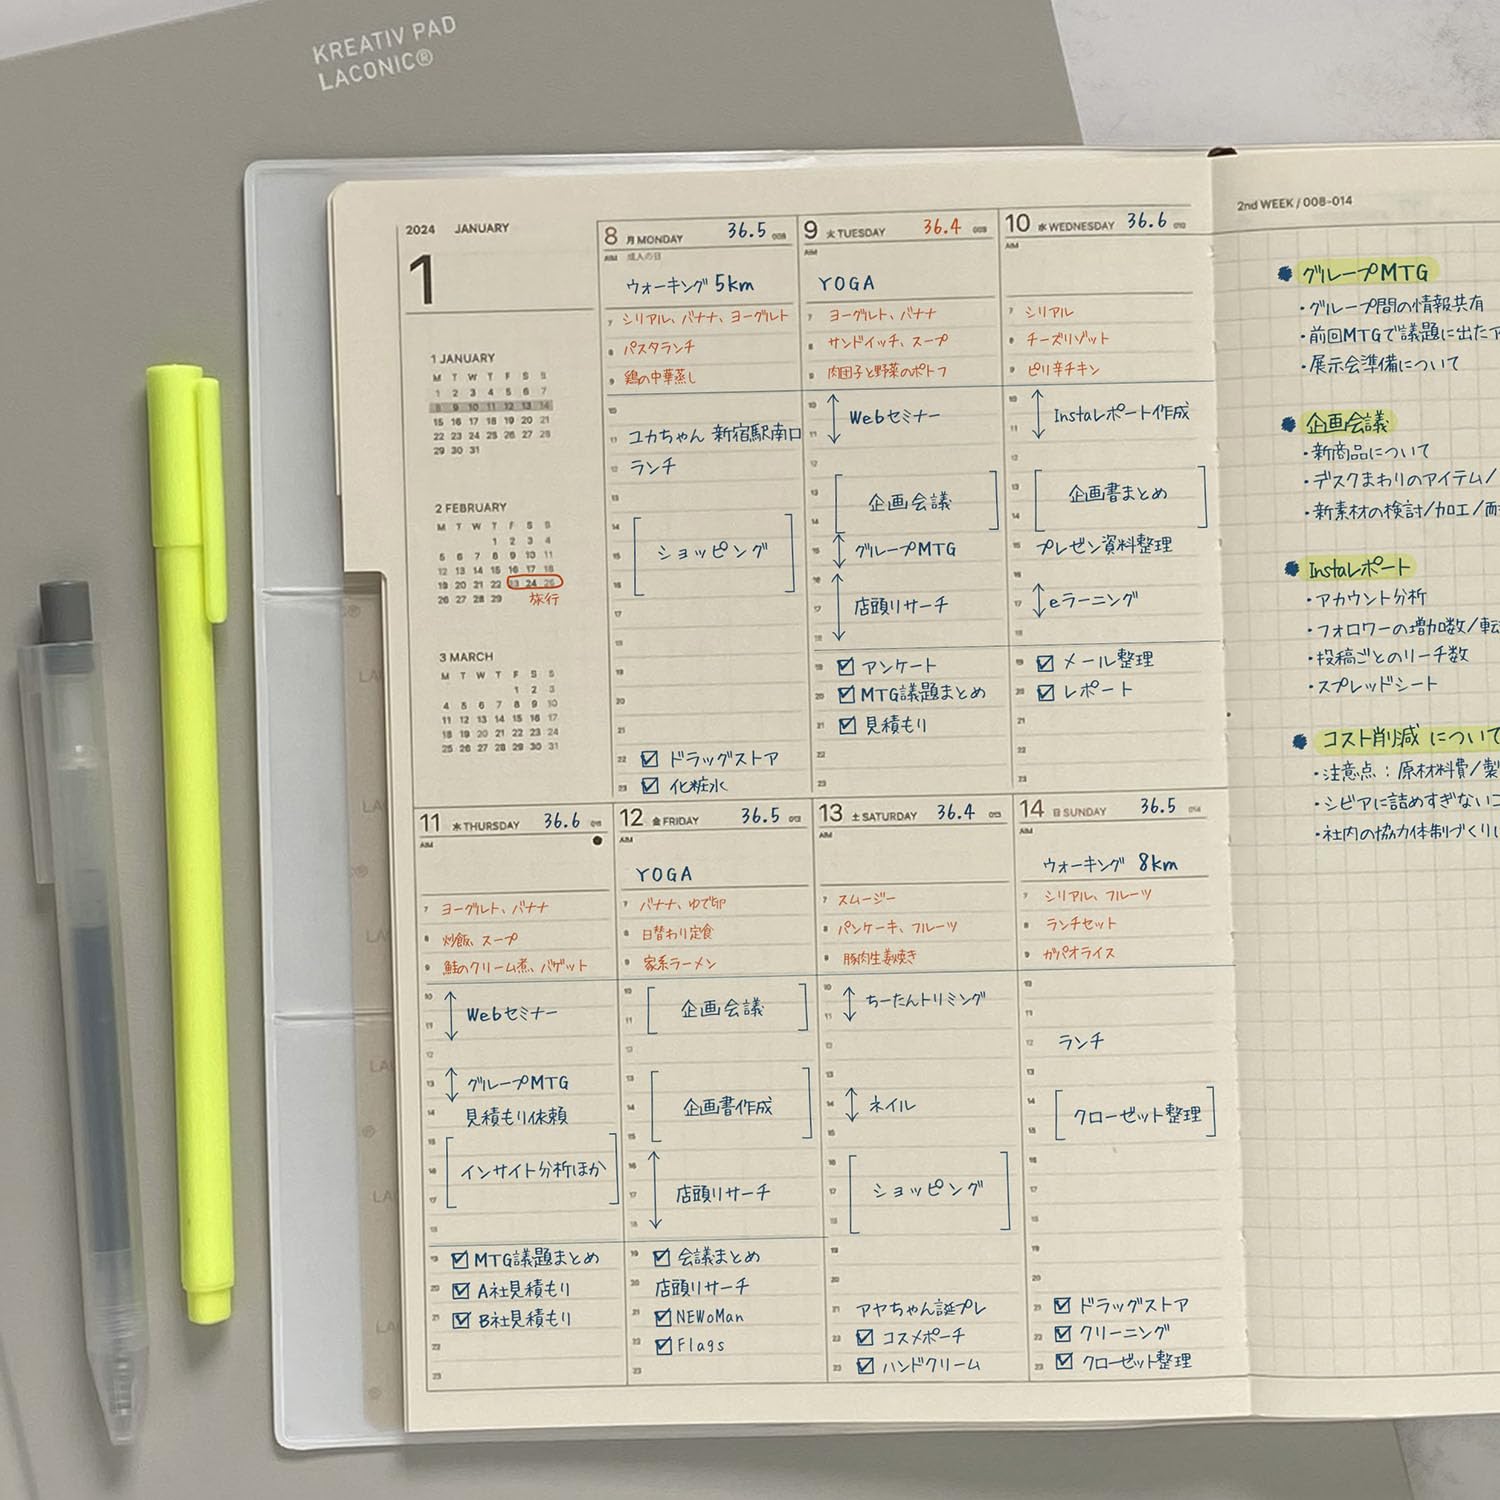 KREATIV PAD
LACONIC®
2024 JANUARY
1
1 JANUARY
M T W T F S S
1 2 3 4 5 6 7
8 9 10 11 12 13 14
15 16 17 18 19 20 21
22 23 24 25 26 27 28
29 30 31
2 FEBRUARY
M T W T F S S
1 2 3 4
5 6 7 8 9 10 11
12 13 14 15 16 17 18
19 20 21 22 23 24 25
26 27 28 29
旅行
3 MARCH
M T W T F S S
1 2 3
4 5 6 7 8 9 10
11 12 13 14 15 16 17
18 19 20 21 22 23 24
25 26 27 28 29 30 31
8 月 MONDAY 36.5 008
AIM 成人の日
ウォーキング 5km
7 シリアル、バナナ、ヨーグルト
8 パスタランチ
9 鶏の中華蒸し
10
11 ユカちゃん 新宿駅南口
12 ランチ
13
14
15 ショッピング
16
17
18
19
20
21
22 ドラッグストア
23 化粧水
9 火 TUESDAY 36.4 009
AIM
YOGA
7 ヨーグルト、バナナ
8 サンドイッチ、スープ
9 肉団子と野菜のポトフ
10 Webセミナー
11
12
13 企画会議
14
15 グループMTG
16
17 店頭リサーチ
18
19 アンケート
20 MTG議題まとめ
21 見積もり
22
23
10 水 WEDNESDAY 36.6 010
AIM
7 シリアル
8 チーズリゾット
9 ピリ辛チキン
10 Instaレポート作成
11
12
13 企画書まとめ
14
15 プレゼン資料整理
16
17 eラーニング
18
19 メール整理
20 レポート
21
22
23
11 木 THURSDAY 36.6 011
AIM
7 ヨーグルト、バナナ
8 炒飯、スープ
9 鮭のクリーム煮、バゲット
10
11 Webセミナー
12
13 グループMTG
14 見積もり依頼
15
16 インサイト分析ほか
17
18
19 MTG議題まとめ
20 A社見積もり
21 B社見積もり
22
23
12 金 FRIDAY 36.5 012
AIM
YOGA
7 バナナ、ゆで卵
8 日替わり定食
9 家系ラーメン
10 企画会議
11
12
13
14 企画書作成
15
16
17 店頭リサーチ
18
19 会議まとめ
20 店頭リサーチ
21 NEWoMan
22 Flags
23
13 土 SATURDAY 36.4 013
AIM
7 スムージー
8 パンケーキ、フルーツ
9 豚肉生姜焼き
10 ちーたんトリミング
11
12
13
14 ネイル
15
16
17 ショッピング
18
19
20
21 アヤちゃん誕プレ
22 コスメポーチ
23 ハンドクリーム
14 日 SUNDAY 36.5 014
AIM
ウォーキング 8km
7 シリアル、フルーツ
8 ランチセット
9 ガパオライス
10
11
12 ランチ
13
14 クローゼット整理
15
16
17
18
19
20
21 ドラッグストア
22 クリーニング
23 クローゼット整理
2nd WEEK / 008-014
グループMTG
・グループ間の情報共有
・前回MTGで議題に出たア
・展示会準備について
企画会議
・新商品について
・デスクまわりのアイテム/
・新素材の検討/加工/耐
Instaレポート
・アカウント分析
・フォロワーの増加数/転
・投稿ごとのリーチ数
・スプレッドシート
コスト削減 について
・注意点：原材料費/製
・シビアに詰めすぎないコ
・社内の協力体制づくりし